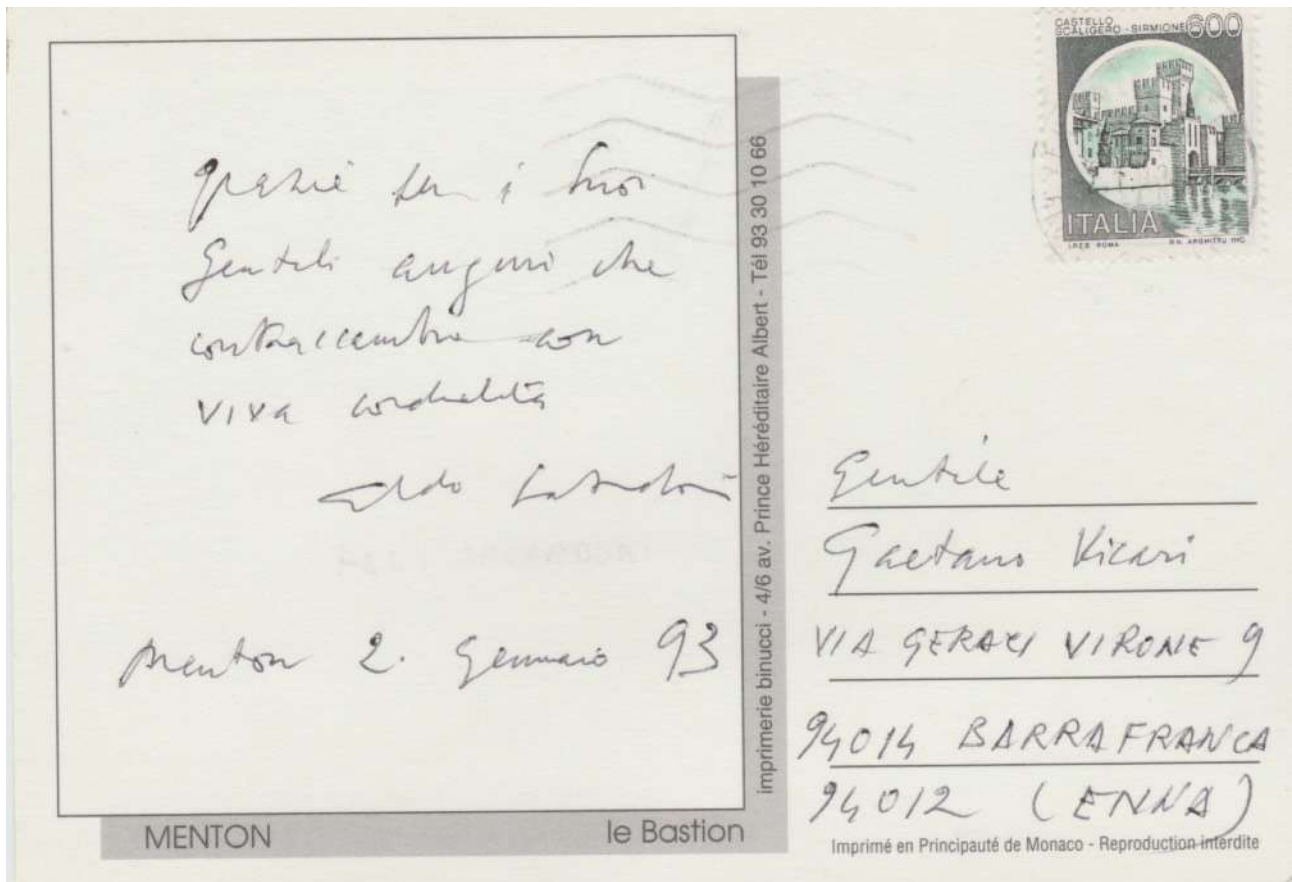 grazie per i suoi
gentili auguri che
contraccambio con
viva cordialità
Aldo
Menton 2. Gennaio 93
MENTON le Bastion
imprimerie binucci - 4/6 av. Prince Héréditaire Albert - Tél 93 30 10 66
CASTELLO
SCALIGERO - SIRMIONE 600
ITALIA
I.P.Z.S. ROMA
Gentile
Gaetano Vicari
VIA GERACI VIRONE 9
94014 BARRAFRANCA
94012 (ENNA)
Imprimé en Principauté de Monaco - Reproduction interdite